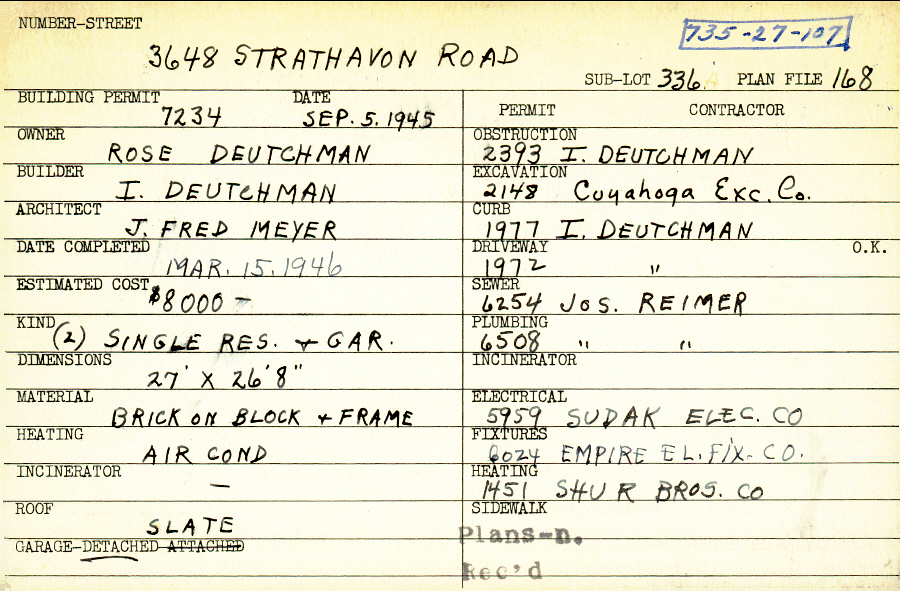 NUMBER-STREET
735-27-107
3648 STRATHAVON ROAD
SUB-LOT 336 PLAN FILE 168
BUILDING PERMIT DATE
7234 SEP. 5. 1945
OWNER
ROSE DEUTCHMAN
BUILDER
I. DEUTCHMAN
ARCHITECT
J. FRED MEYER
DATE COMPLETED
MAR. 15. 1946
ESTIMATED COST
$8000 -
KIND
(2) SINGLE RES. + GAR.
DIMENSIONS
27' X 26'8"
MATERIAL
BRICK ON BLOCK + FRAME
HEATING
AIR COND
INCINERATOR
-
ROOF
SLATE
GARAGE-DETACHED ATTACHED
PERMIT CONTRACTOR
OBSTRUCTION
2393 I. DEUTCHMAN
EXCAVATION
2148 Cuyahoga Exc. Co.
CURB
1977 I. DEUTCHMAN
DRIVEWAY O.K.
1972 "
SEWER
6254 JOS. REIMER
PLUMBING
6508 " "
INCINERATOR
ELECTRICAL
5959 SUDAK ELEC. CO
FIXTURES
6024 EMPIRE EL. FIX. CO.
HEATING
1451 SHUR BROS. CO
SIDEWALK
Plans-n.
Rec'd